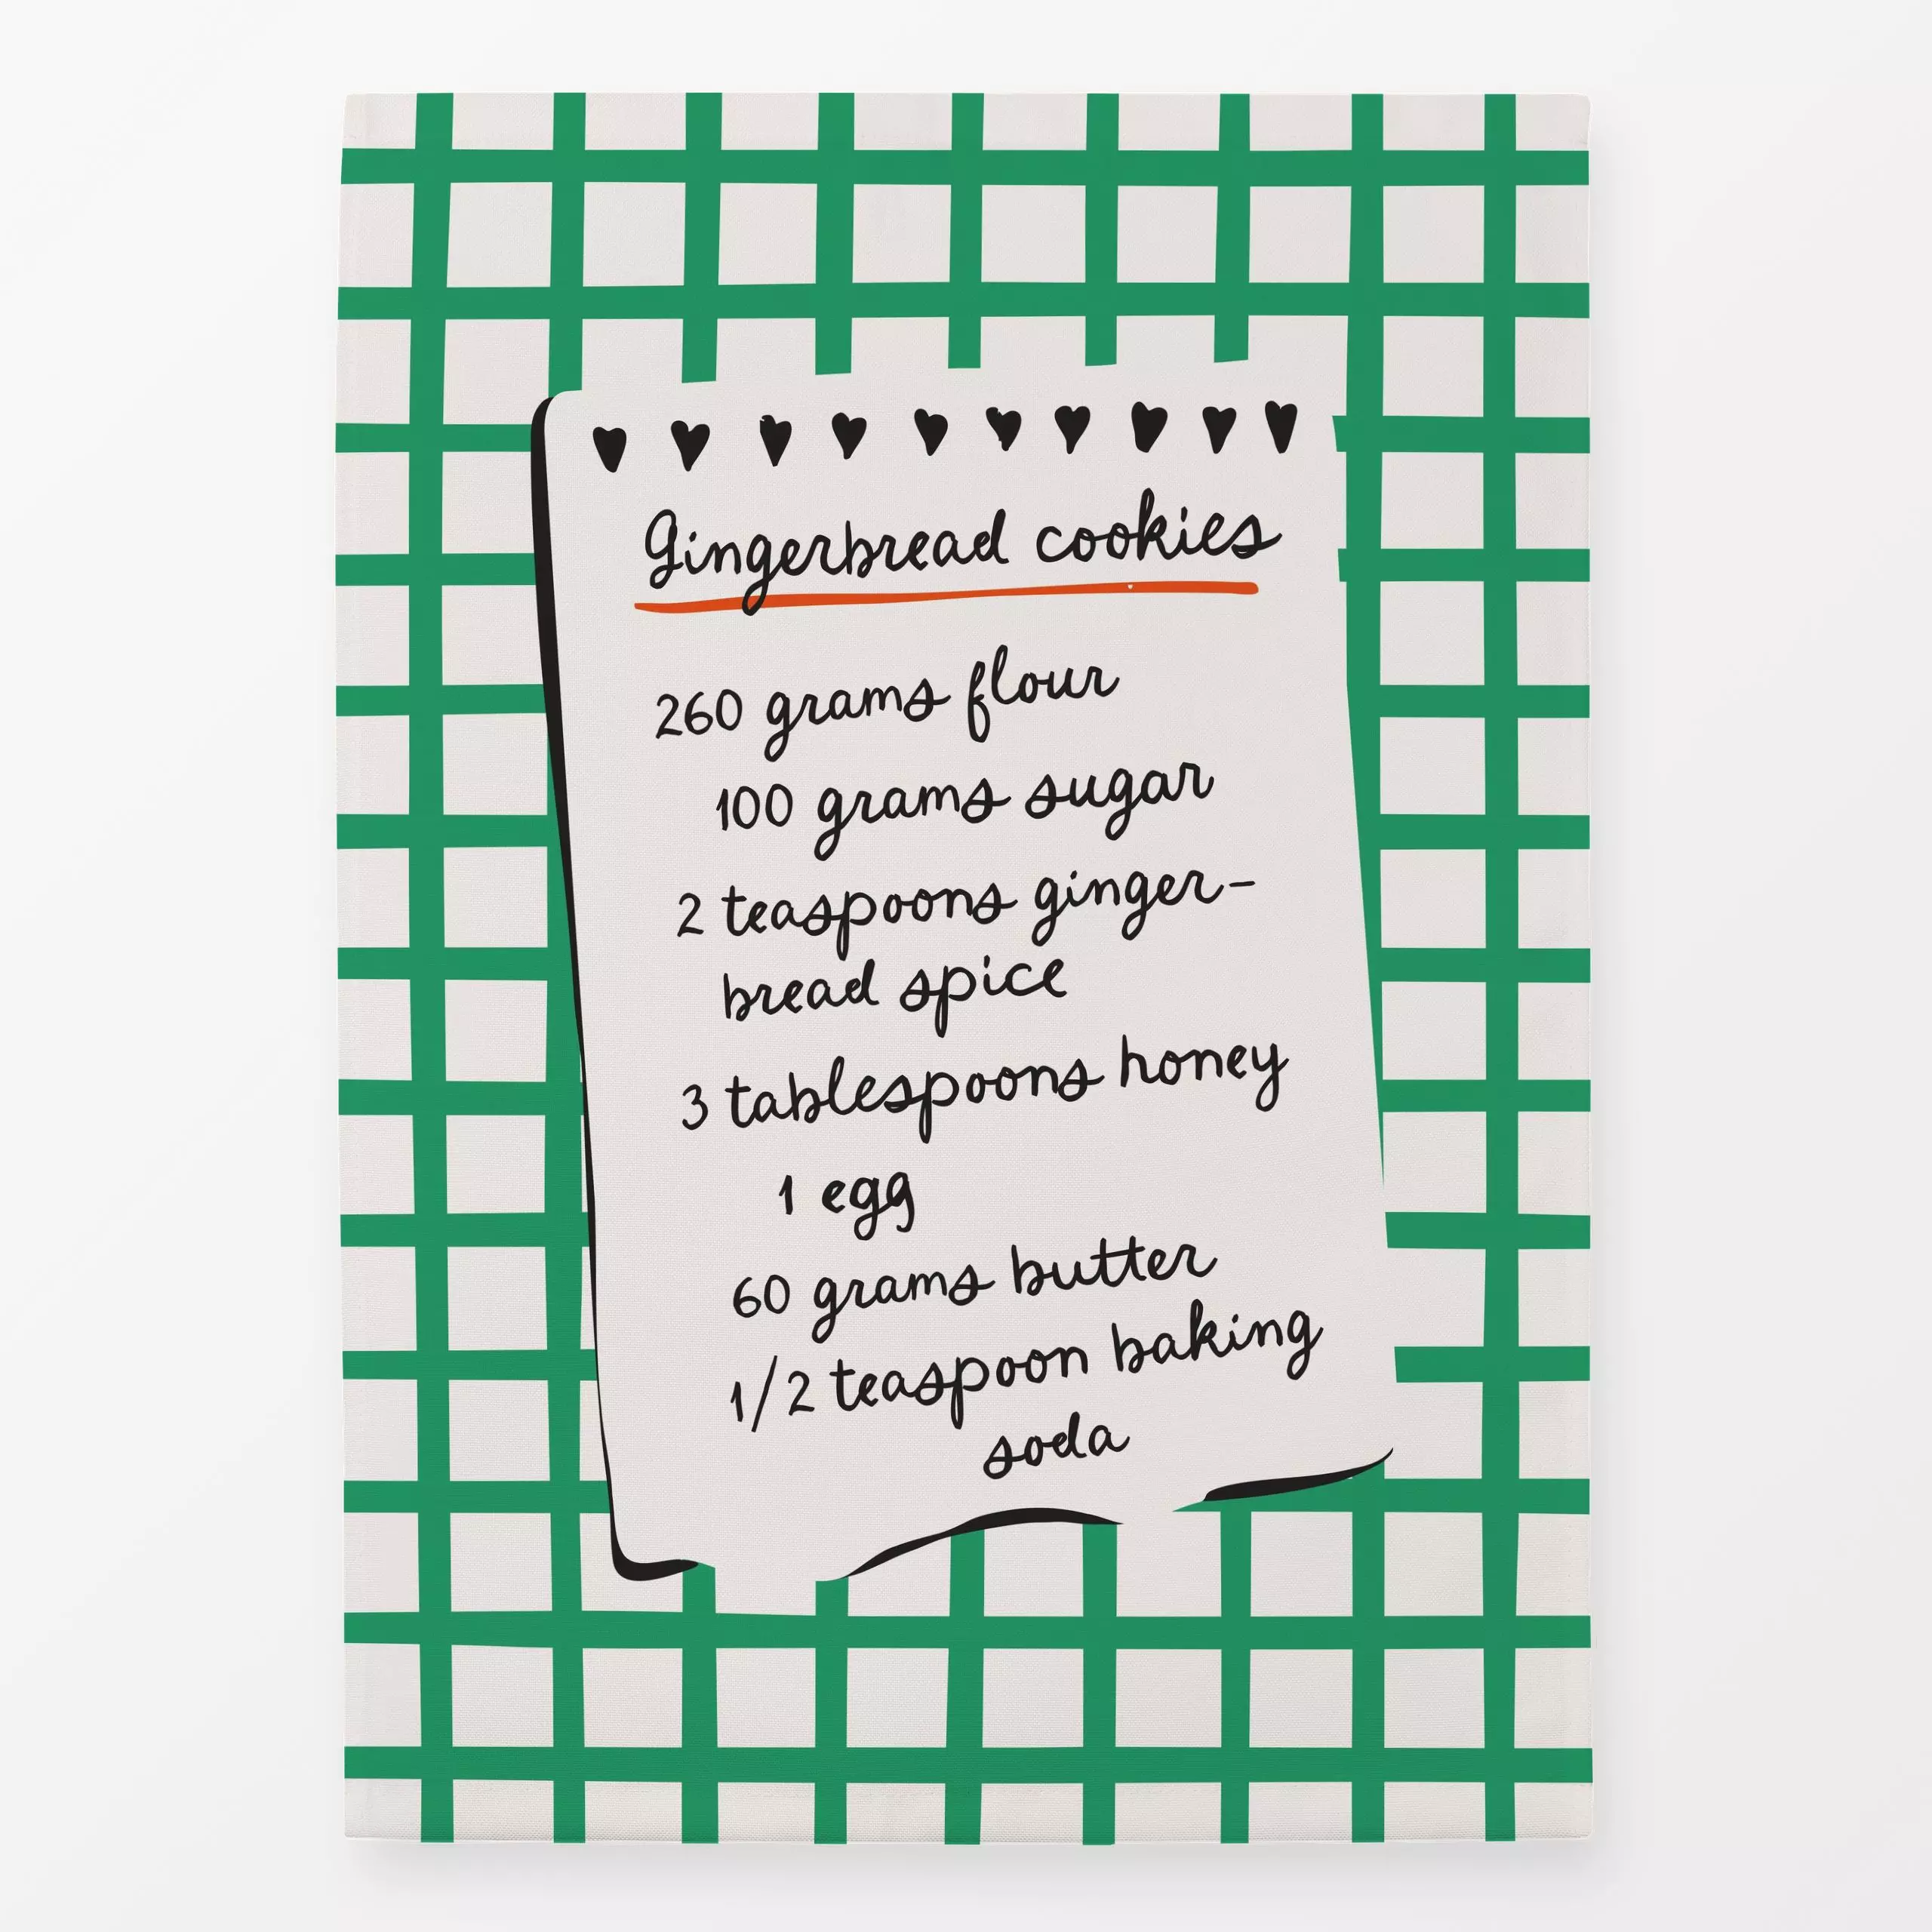 Gingerbread cookies
260 grams flour
100 grams sugar
2 teaspoons ginger-
bread spice
3 tablespoons honey
1 egg
60 grams butter
1/2 teaspoon baking
soda